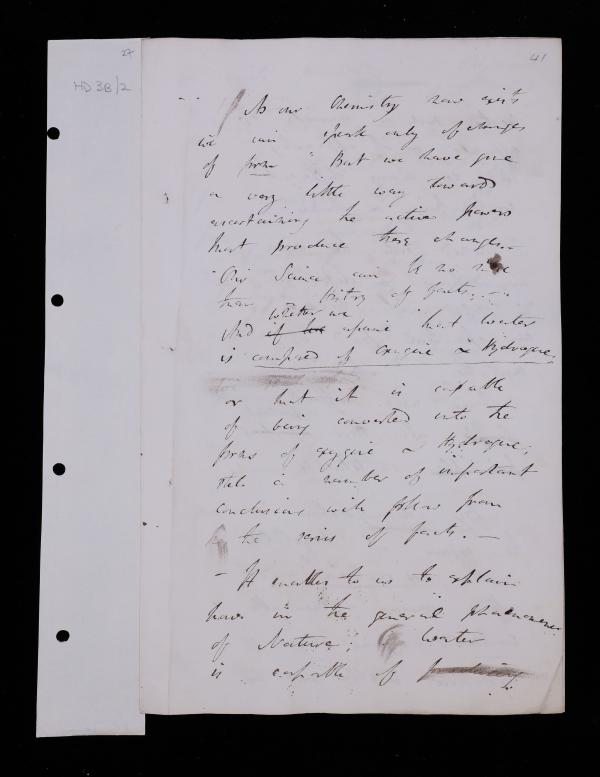 27
41
HD 3B/2
As our Chemistry now exists
we can speak only of changes
of form " But we have gone
a very little way towards
ascertaining the active powers
that produce these changes.-
"Our Science can be no more
than history of facts;. - "
whether we
And if we assume that water
is composed of oxygene & Hydrogene,
or that it is capable
of being converted into the
forms of oxygene & Hydrogene;
still a number of important
conclusions will follow from
the series of facts. -
- It enables to us to explain
how in the general phaenomena
of Nature; water
is capable of producing